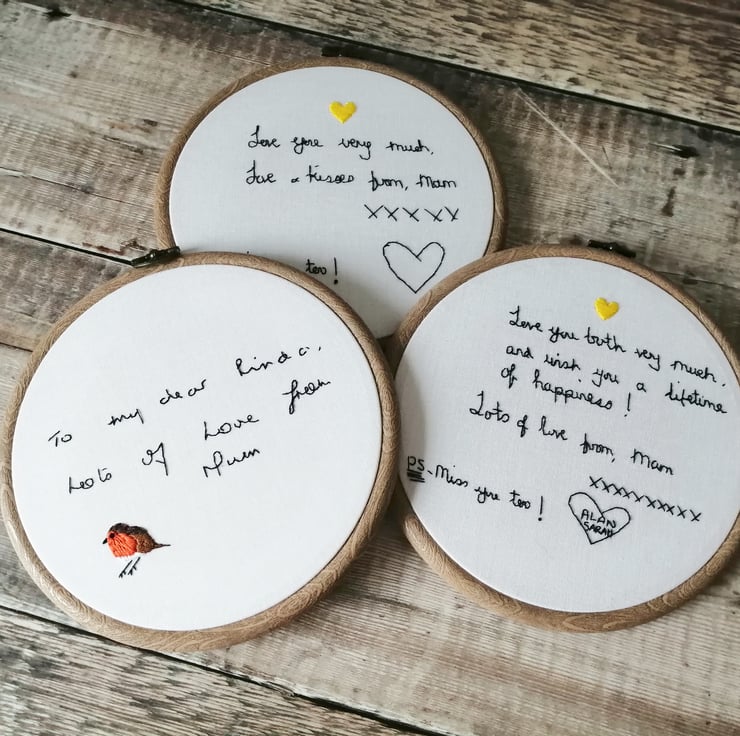 Love you very much,
Love & kisses from, Mam
XXXXX
too!
To my dear Linda,
Lots of Love from
Mum
Love you both very much,
and wish you a lifetime
of happiness!
Lots of love from, Mam
xxxxxxxxx
PS. Miss you too!
ALAN
SARAH